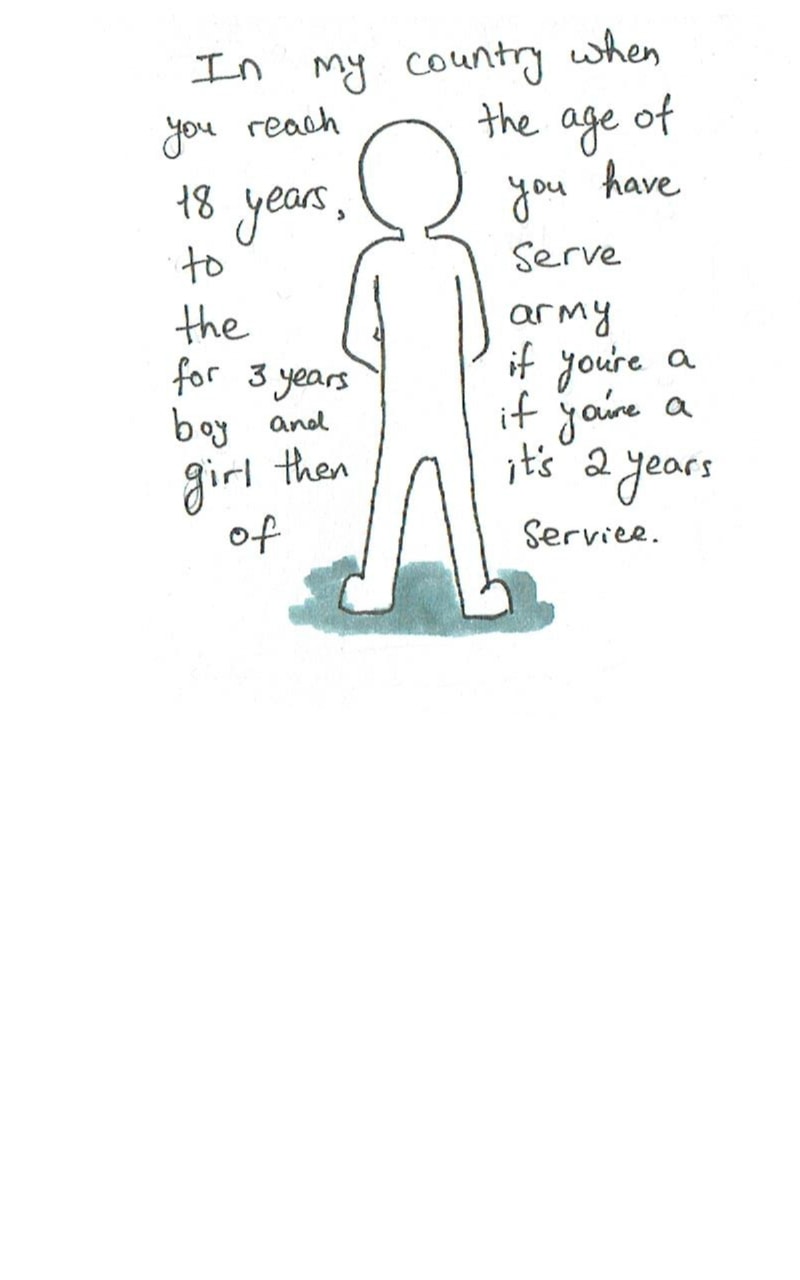 In my country when
you reach the age of
18 years, you have
to serve
the army
for 3 years if you're a
boy and if you're a
girl then it's 2 years
of service.